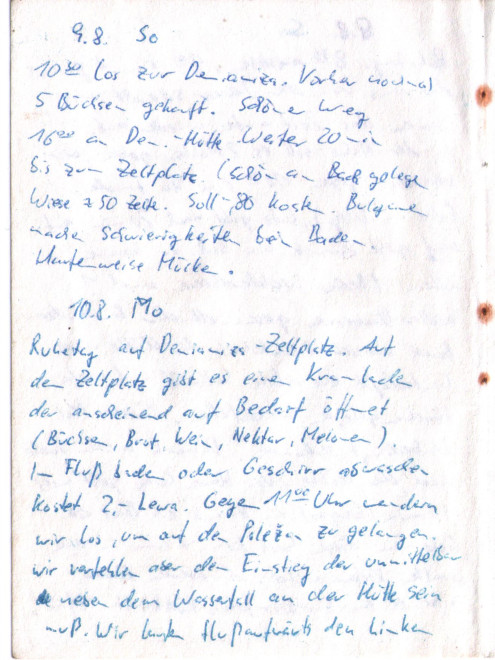 9.8. So
10³⁰ los zur Demianiza. Vorher nochmal
5 Büchsen gekauft. Schöner Weg
16⁰⁰ an Dem.-Hütte. Weiter 20 min
bis zum Zeltplatz. (schön am Bach gelegen
Wiese 50 Zelte. Soll -,80 kosten. Bulgaren
machen Schwierigkeiten beim Baden.
Haufenweise Mücken.
10.8. Mo
Ruhetag auf Demianiza-Zeltplatz. Auf
dem Zeltplatz gibt es einen Kramladen
der anscheinend auf Bedarf öffnet
(Büchsen, Brot, Wein, Nektar, Melonen).
Im Fluß baden oder Geschirr abwaschen
kostet 2,- Lewa. Gegen 11⁰⁰ Uhr wandern
wir los, um auf den Poležan zu gelangen.
wir verfehlen aber den Einstieg der unmittelbar
neben dem Wasserfall an der Hütte sein
muß. Wir laufen flußaufwärts den linken